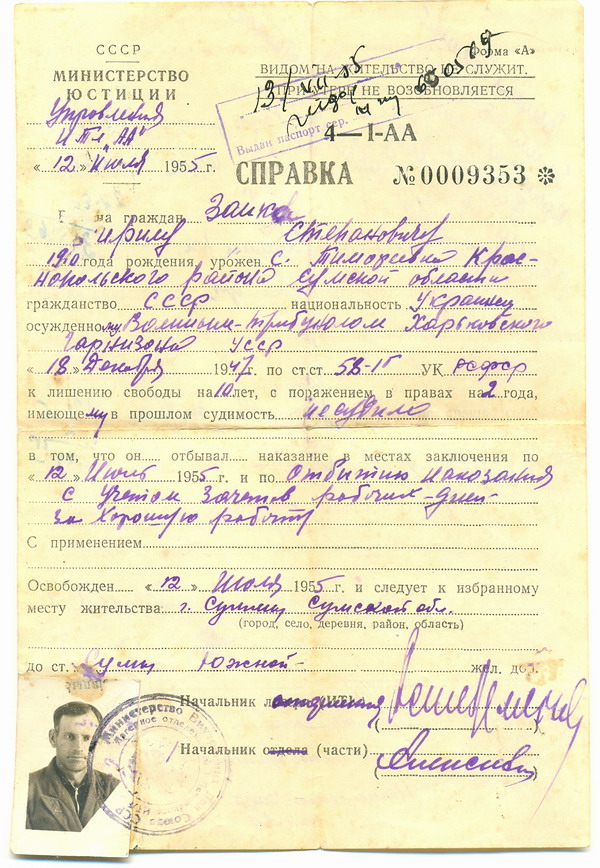 СССР
МИНИСТЕРСТВО
ЮСТИЦИИ
Управления
ИТЛ "АА"
«12» Июля 1955 г.
Форма «А»
ВИДОМ НА ЖИТЕЛЬСТВО НЕ СЛУЖИТ.
ПРИ УТЕРЕ НЕ ВОЗОБНОВЛЯЕТСЯ
13/VII-55
Выдан паспорт сер.
4—I-АА
СПРАВКА №0009353 *
на граждан Заика
Степановичу
1910 года рождения, урожен. с. Тимофеевка Крас-
нопольского района Сумской области
гражданство СССР национальность Украинец
осужденному Военным-трибуналом Харьковского
Гарнизона УССР
«18» Декабря 1947 г. по ст.ст. 58-1б УК РСФСР
к лишению свободы на 10 лет, с поражением в правах на 2 года,
имеющему в прошлом судимость несудим
в том, что он отбывал наказание в местах заключения по
«12» Июль 1955 г. и по Отбытию наказания
с учетом зачетов рабочих-дней-
за хорошую работу
С применением
Освобожден «12» Июля 1955 г. и следует к избранному
месту жительства: г. Сумы Сумской обл.
(город, село, деревня, район, область)
до ст. Сумы Южной- жел. дор.
Начальник
Начальник отдела (части)